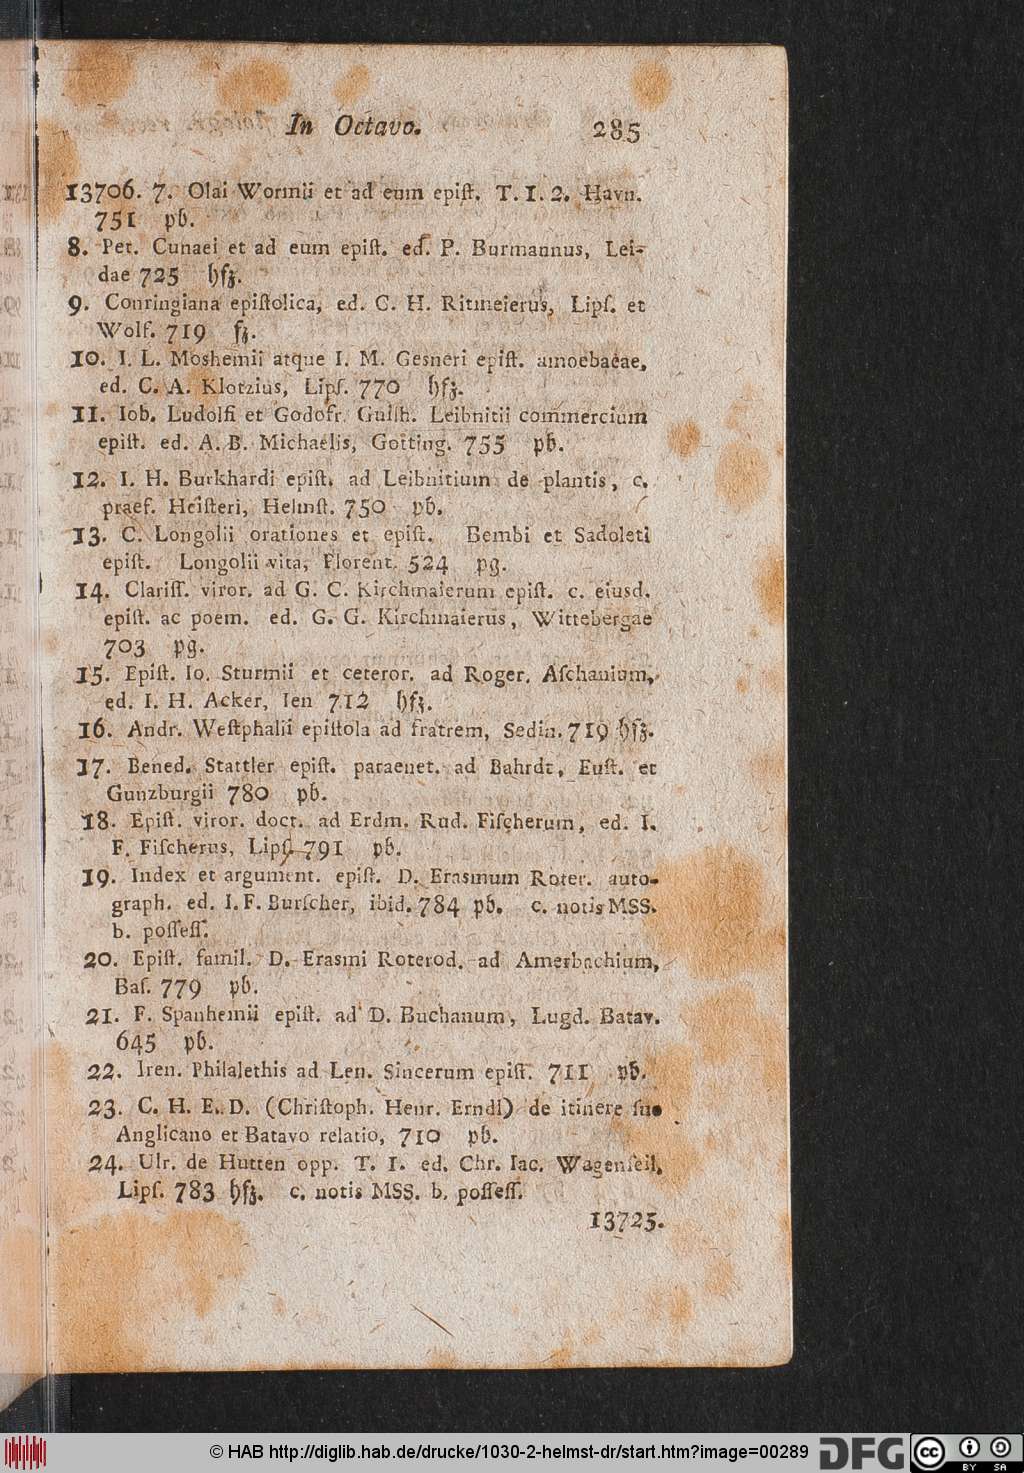 In Octavo. 285
13706. 7. Olai Wormii et ad eum epiſt. T. I. 2. Havn.
751 pb.
8. Pet. Cunaei et ad eum epiſt. ed. P. Burmannus, Lei-
dae 725 hfz.
9. Conringiana epiſtolica, ed. C. H. Ritmeierus, Lipſ. et
Wolf. 719 fz.
10. I. L. Moshemii atque I. M. Gesneri epiſt. amoebaeae,
ed. C. A. Klotzius, Lipſ. 770 hfz.
11. Iob. Ludolfi et Godofr. Guilh. Leibnitii commercium
epiſt. ed. A. B. Michaelis, Gotting. 755 pb.
12. I. H. Burkhardi epiſt. ad Leibnitium de plantis, c.
praef. Heiſteri, Helmſt. 750 pb.
13. C. Longolii orationes et epiſt. Bembi et Sadoleti
epiſt. Longolii vita, Florent. 524 pg.
14. Clariſſ. viror. ad G. C. Kirchmaierum epiſt. c. eiusd.
epiſt. ac poem. ed. G. G. Kirchmaierus, Wittebergae
703 pg.
15. Epiſt. Io. Sturmii et ceteror. ad Roger. Aſchanium,
ed. I. H. Acker, Ien 712 hfz.
16. Andr. Weſtphalii epiſtola ad fratrem, Sedin. 719 hfz.
17. Bened. Stattler epiſt. paraenet. ad Bahrdt, Euſt. et
Gunzburgii 780 pb.
18. Epiſt. viror. doct. ad Erdm. Rud. Fiſcherum, ed. I.
F. Fiſcherus, Lipſ. 791 pb.
19. Index et argument. epiſt. D. Erasmum Roter. auto-
graph. ed. I. F. Burſcher, ibid. 784 pb. c. notis MSS.
b. poſſeſſ.
20. Epiſt. famil. D. Erasmi Roterod. ad Amerbachium,
Baſ. 779 pb.
21. F. Spanhemii epiſt. ad D. Buchanum, Lugd. Batav.
645 pb.
22. Iren. Philalethis ad Len. Sincerum epiſt. 711 pb.
23. C. H. E. D. (Chriſtoph. Henr. Erndl) de itinere ſuo
Anglicano et Batavo relatio, 710 pb.
24. Ulr. de Hutten opp. T. I. ed. Chr. Iac. Wagenſeil,
Lipſ. 783 hfz. c. notis MSS. b. poſſeſſ.
13725.
© HAB http://diglib.hab.de/drucke/1030-2-helmst-dr/start.htm?image=00289 DFG cc BY SA